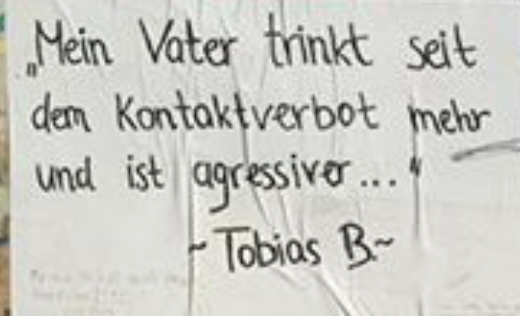 „Mein Vater trinkt seit
dem Kontaktverbot mehr
und ist agressiver..."
~Tobias B.~